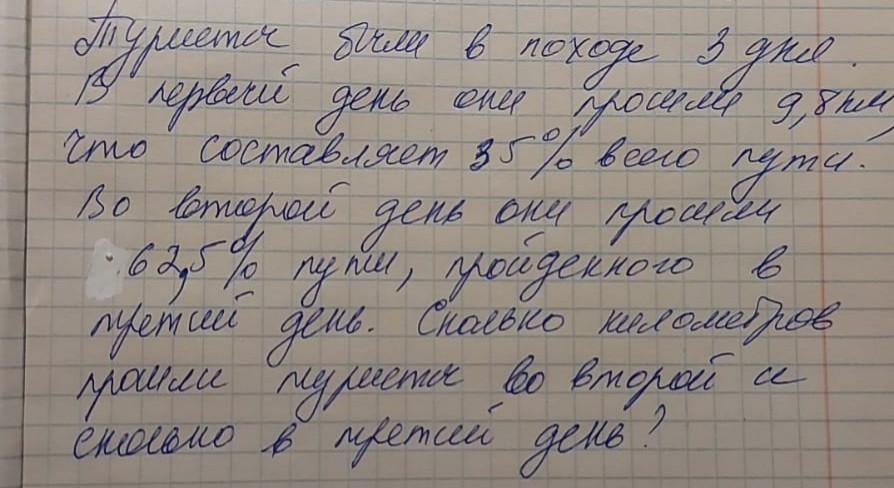 Туристы были в походе 3 дня.
В первый день они прошли 9,8 км,
что составляет 35% всего пути.
Во второй день они прошли
62,5% пути, пройденного в
третий день. Сколько километров
прошли туристы во второй и
сколько в третий день?